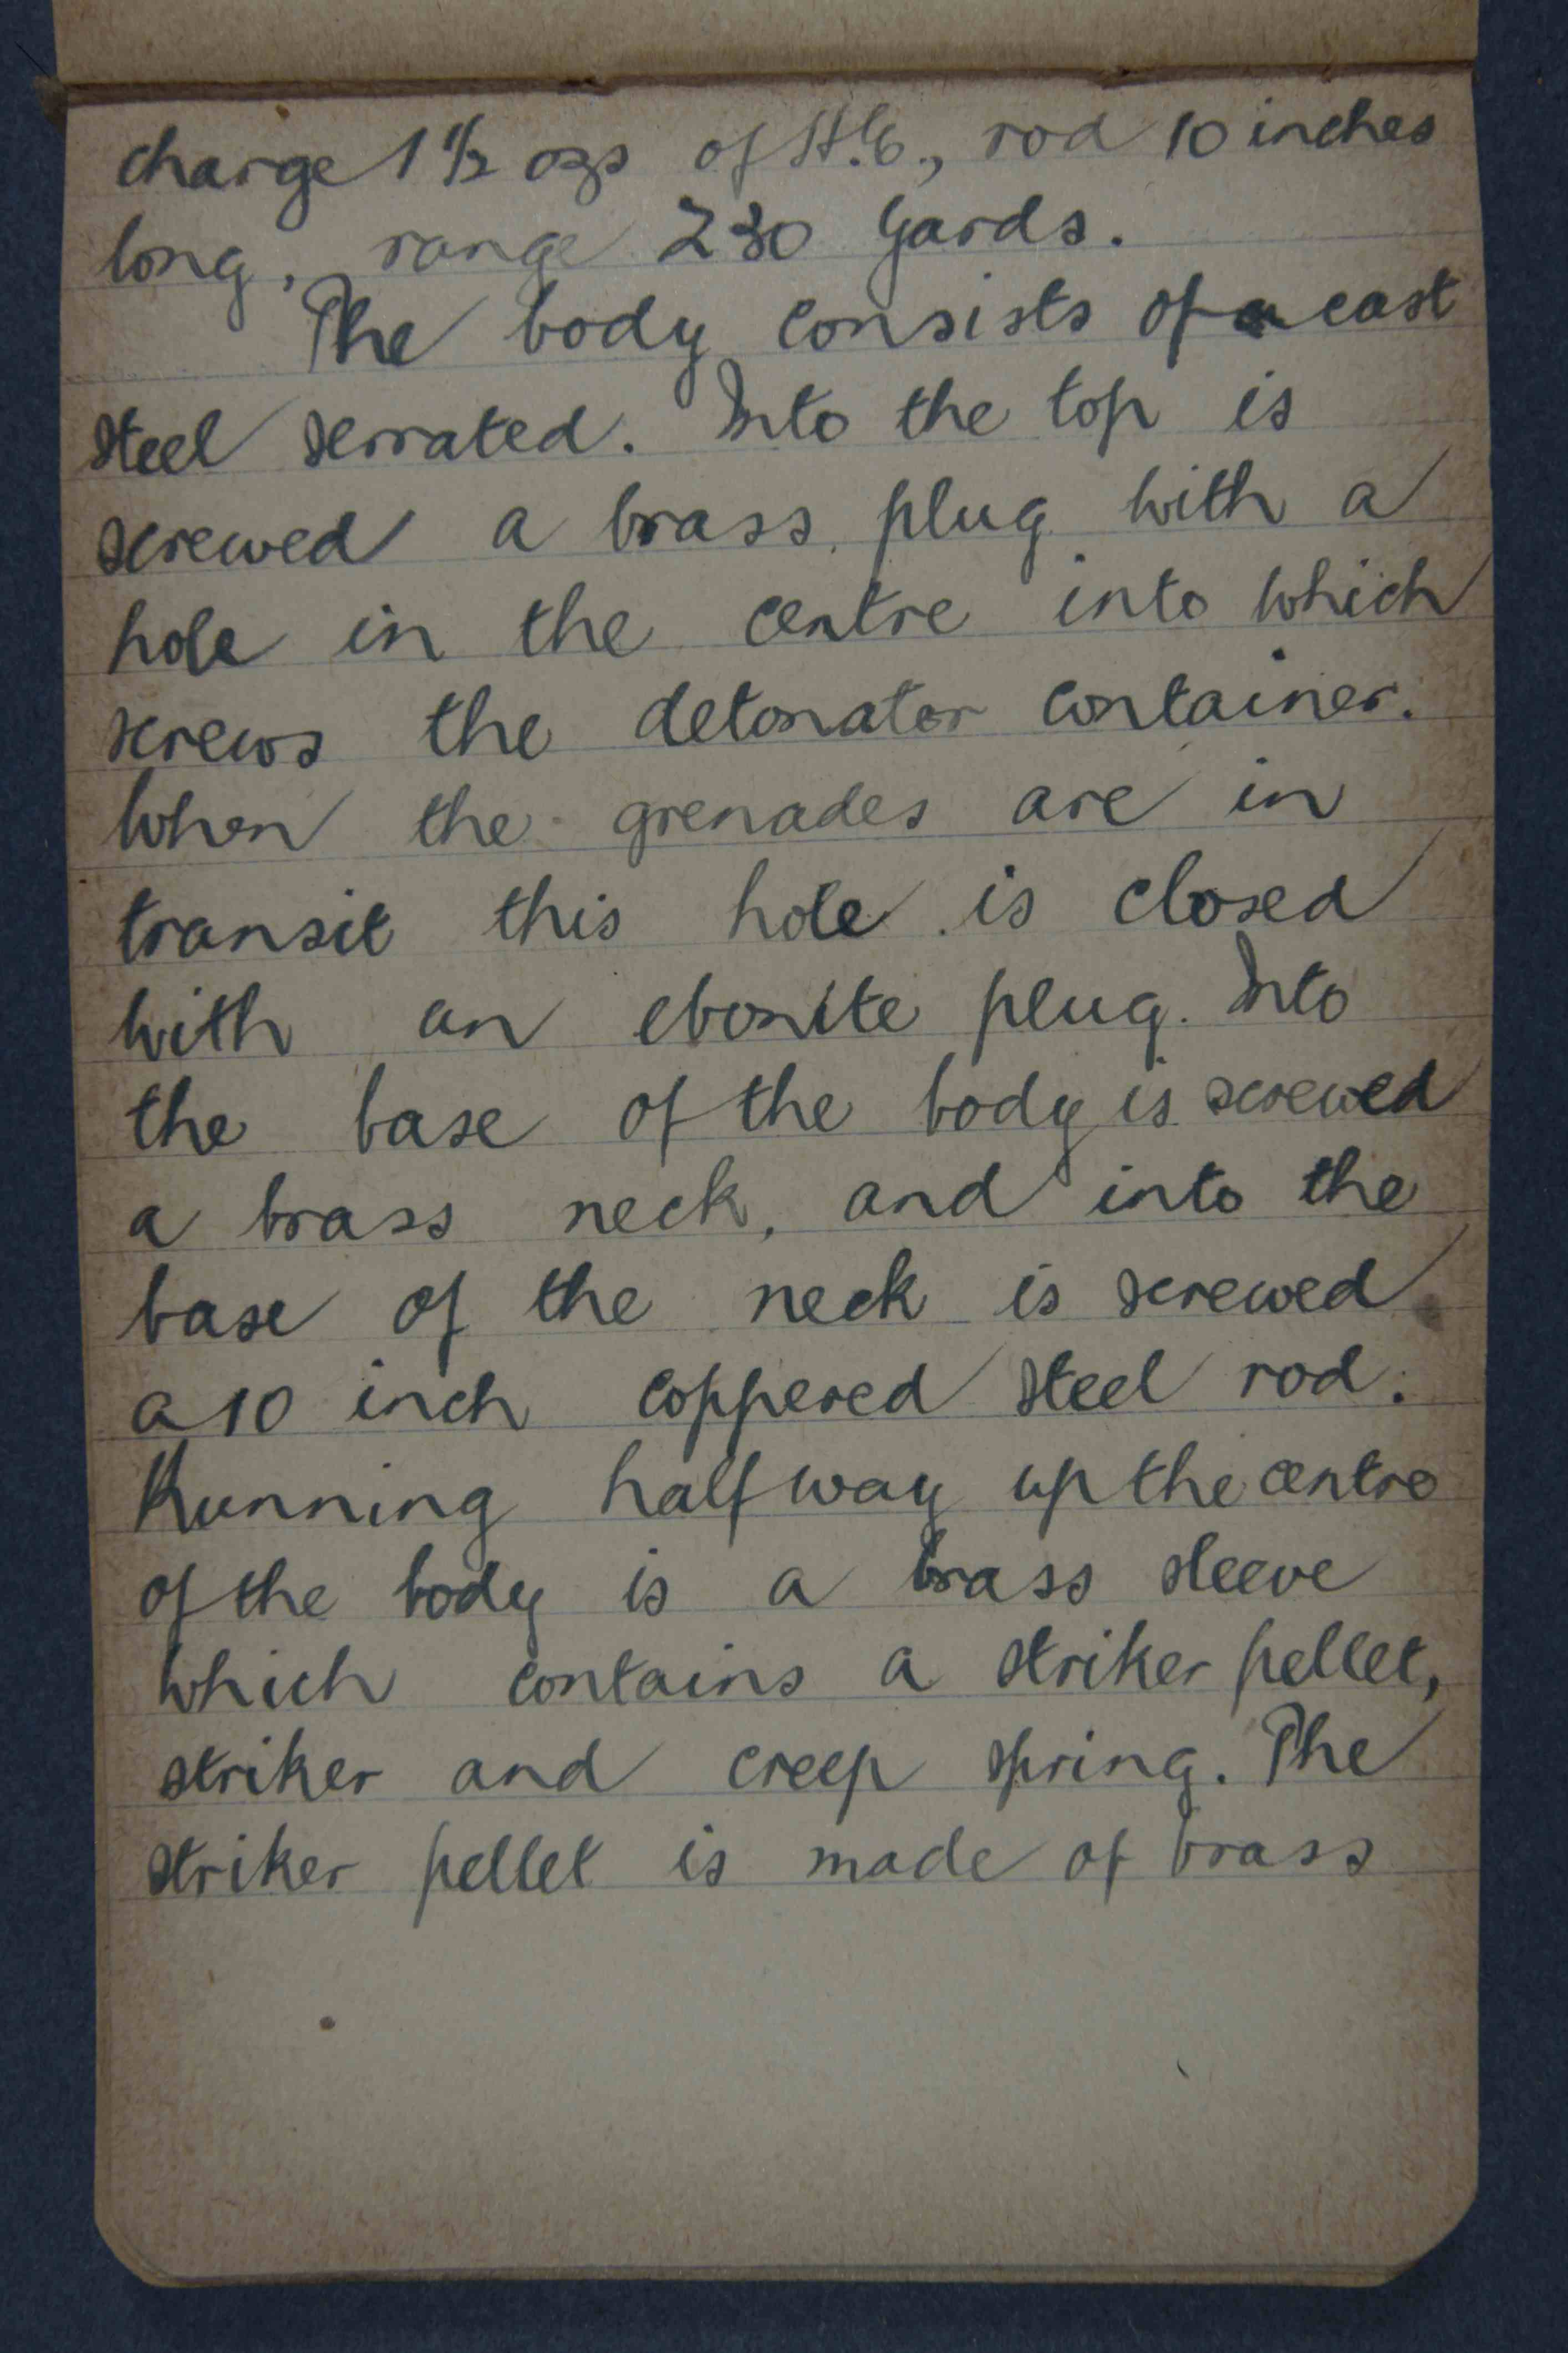 charge 1 1/2 ozs of H.E., rod 10 inches
long, range 230 yards.
The body consists of a cast
steel serrated. Into the top is
screwed a brass plug with a
hole in the centre into which
screws the detonator container.
When the grenades are in
transit this hole is closed
with an ebonite plug. Into
the base of the body is screwed
a brass neck, and into the
base of the neck is screwed
a 10 inch coppered steel rod.
Running half way up the centre
of the body is a brass sleeve
which contains a striker pellet,
striker and creep spring. The
striker pellet is made of brass